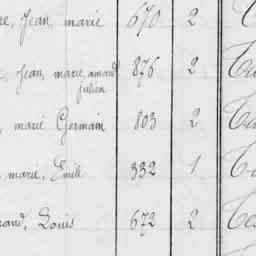 re, Jean, marie 670 2
, Jean, marie, amand 876 2
julien
, marie Germain 803 2
, marie, Emile 332 1
rand, Louis 672 2